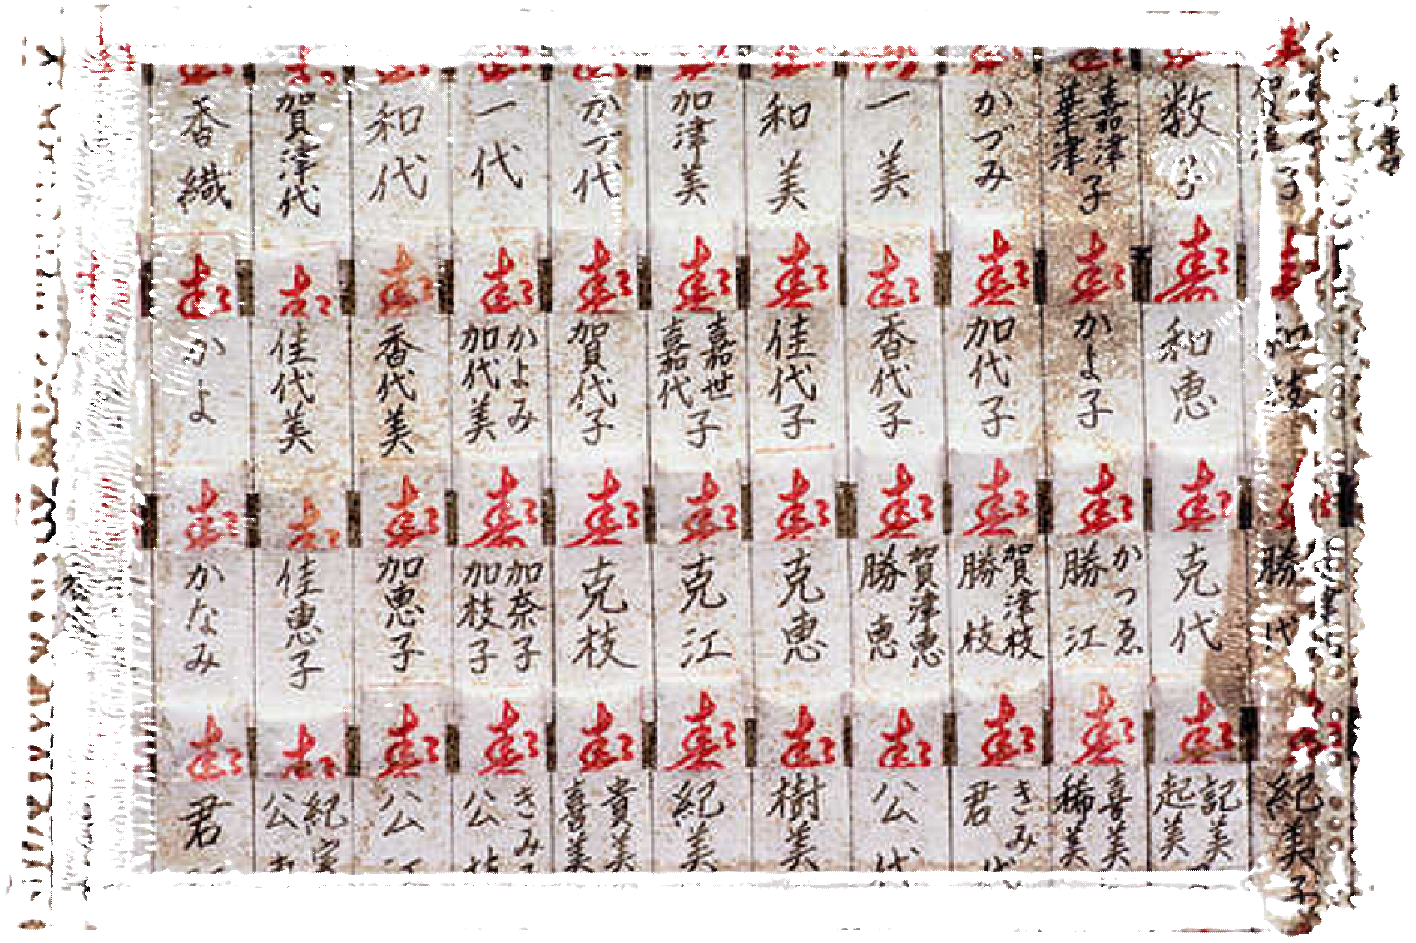 数子
嘉津子
華津
かづみ
一美
和美
加津美
かづ代
一代
和代
賀津代
香織
和恵
かよ子
加代子
香代子
佳代子
嘉世子
嘉代
賀代子
かよみ
加代美
香代美
佳代美
かよ
勝代
克代
かつゑ
勝江
賀津枝
勝枝
賀津恵
勝恵
克恵
克江
克枝
加奈子
加枝子
加恵子
佳恵子
かなみ
紀美子
記美
起美
喜美
稀美
きみ代
君代
公代
樹美
紀美
貴美
喜美
きみ
公枝
公
紀
公
君